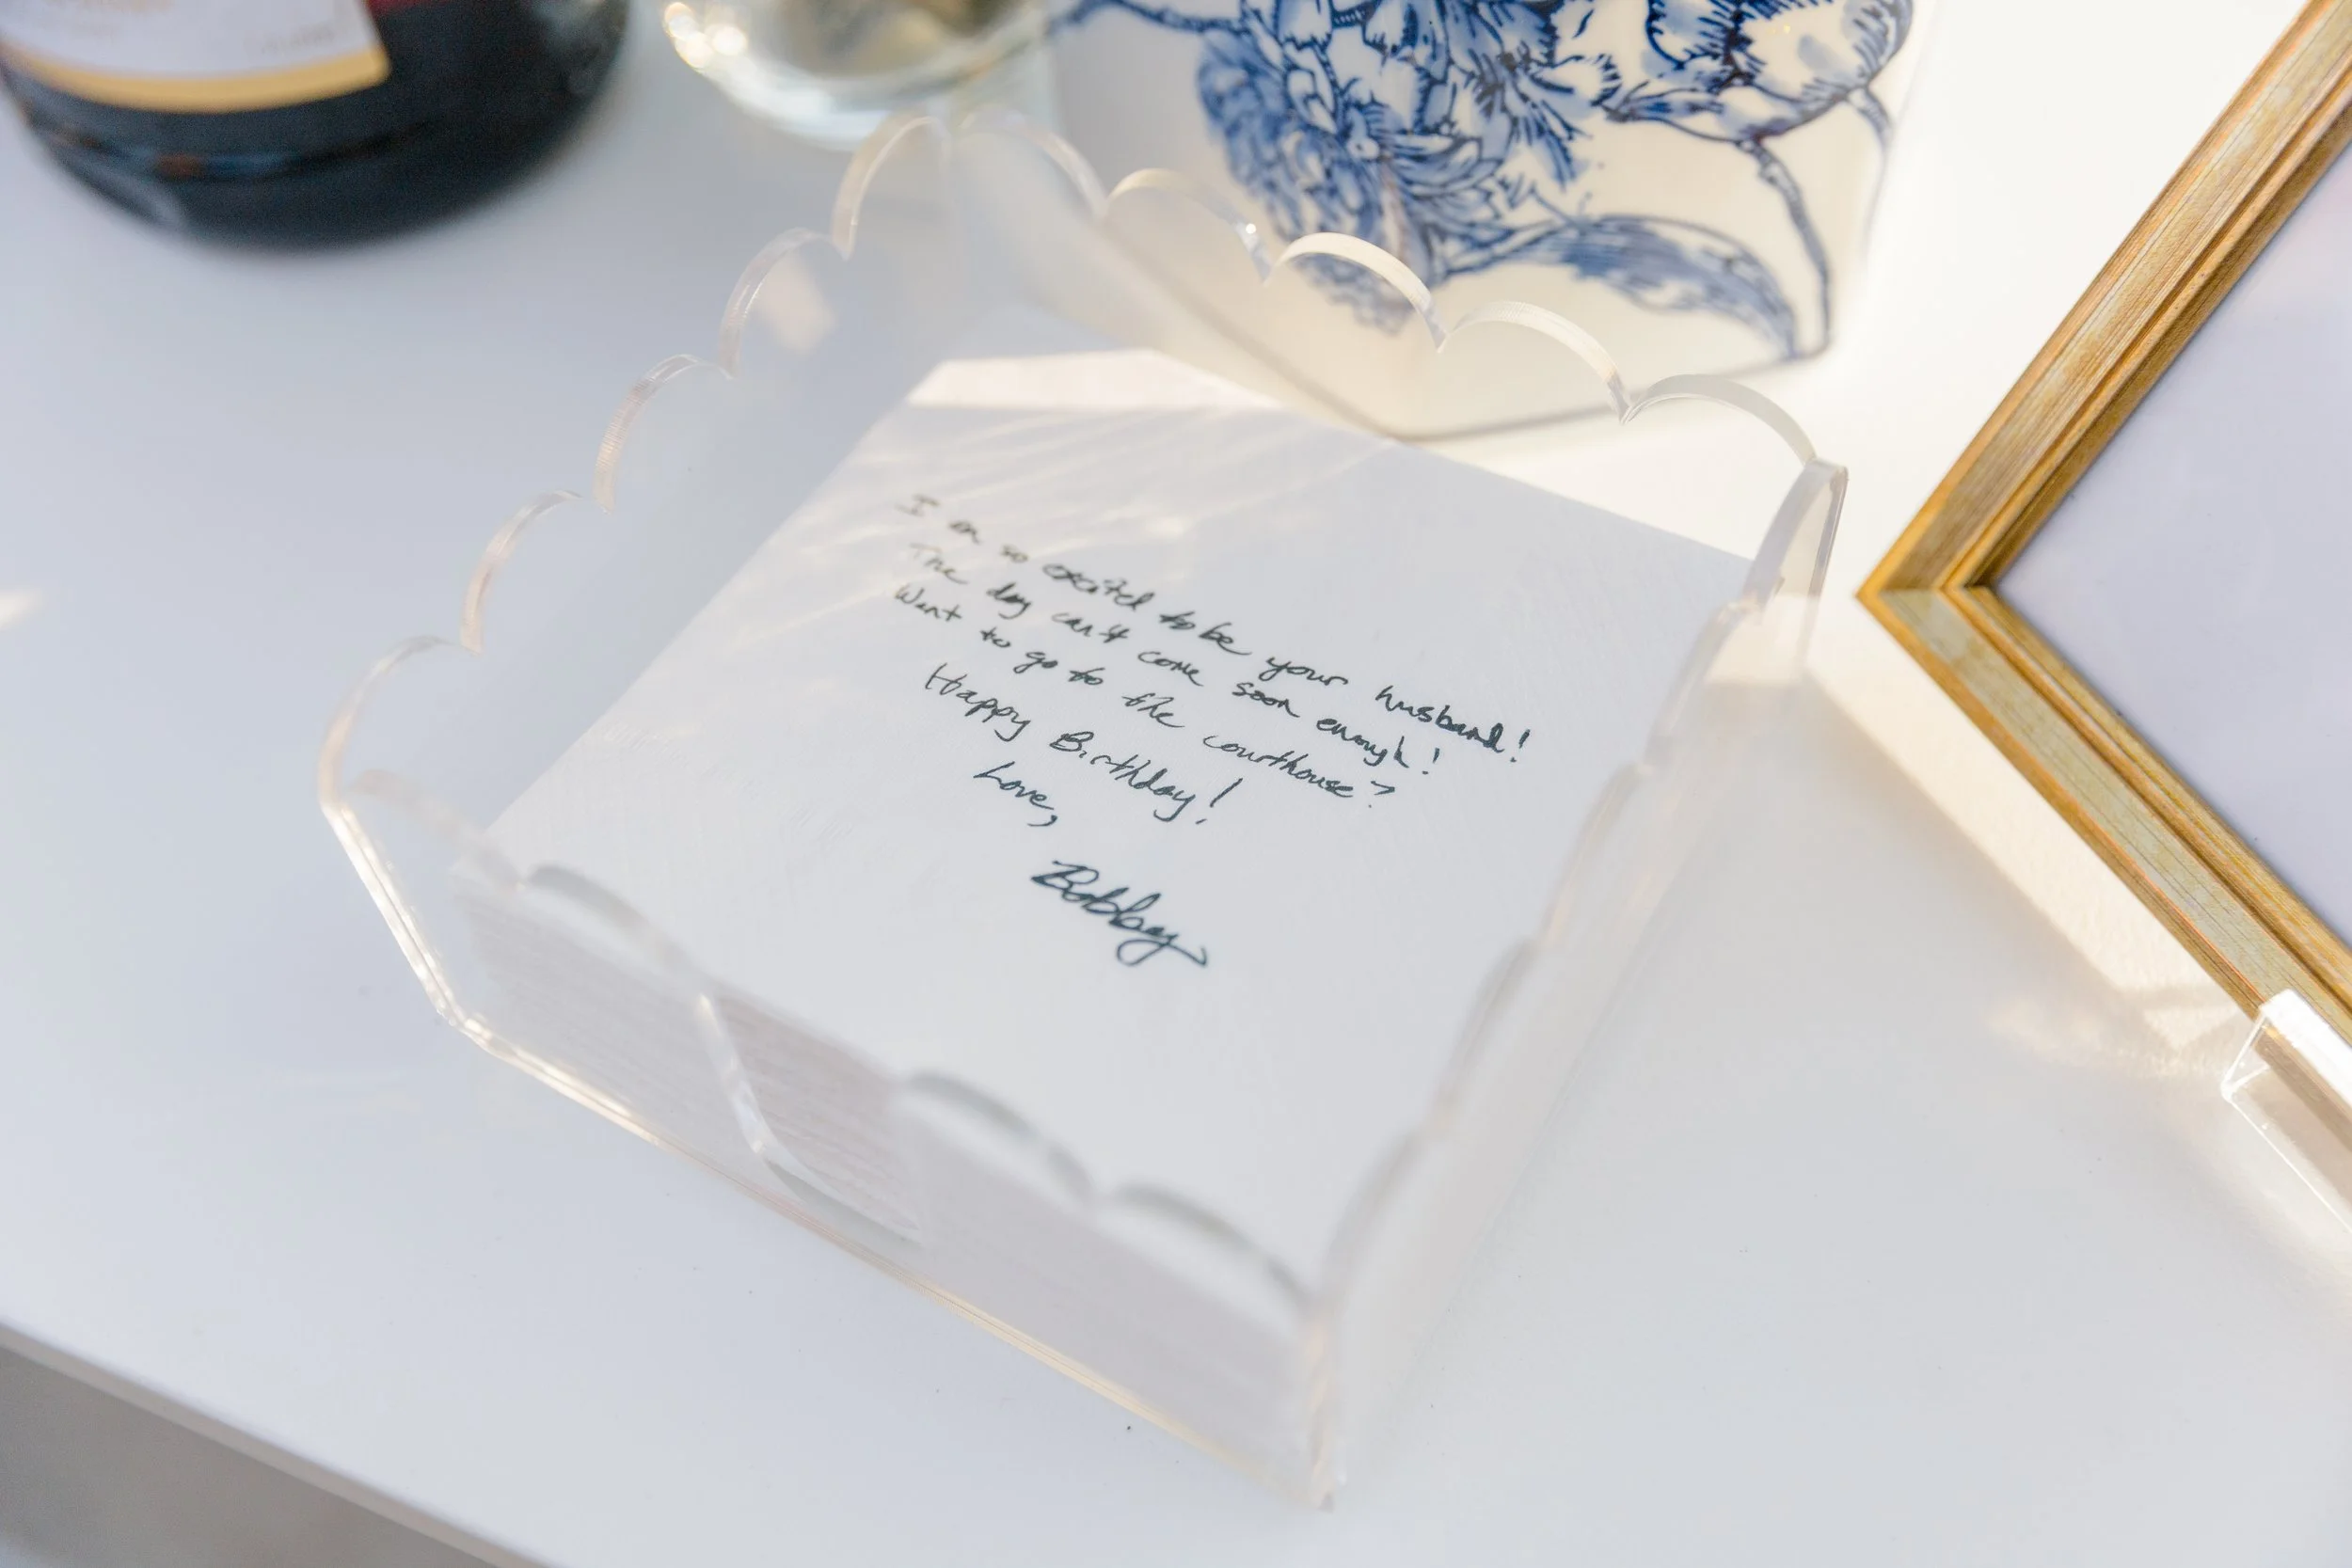 I am so excited to be your husband!
The day can't come soon enough!
Want to go to the courthouse?
Happy Birthday!
Love,
Bobby